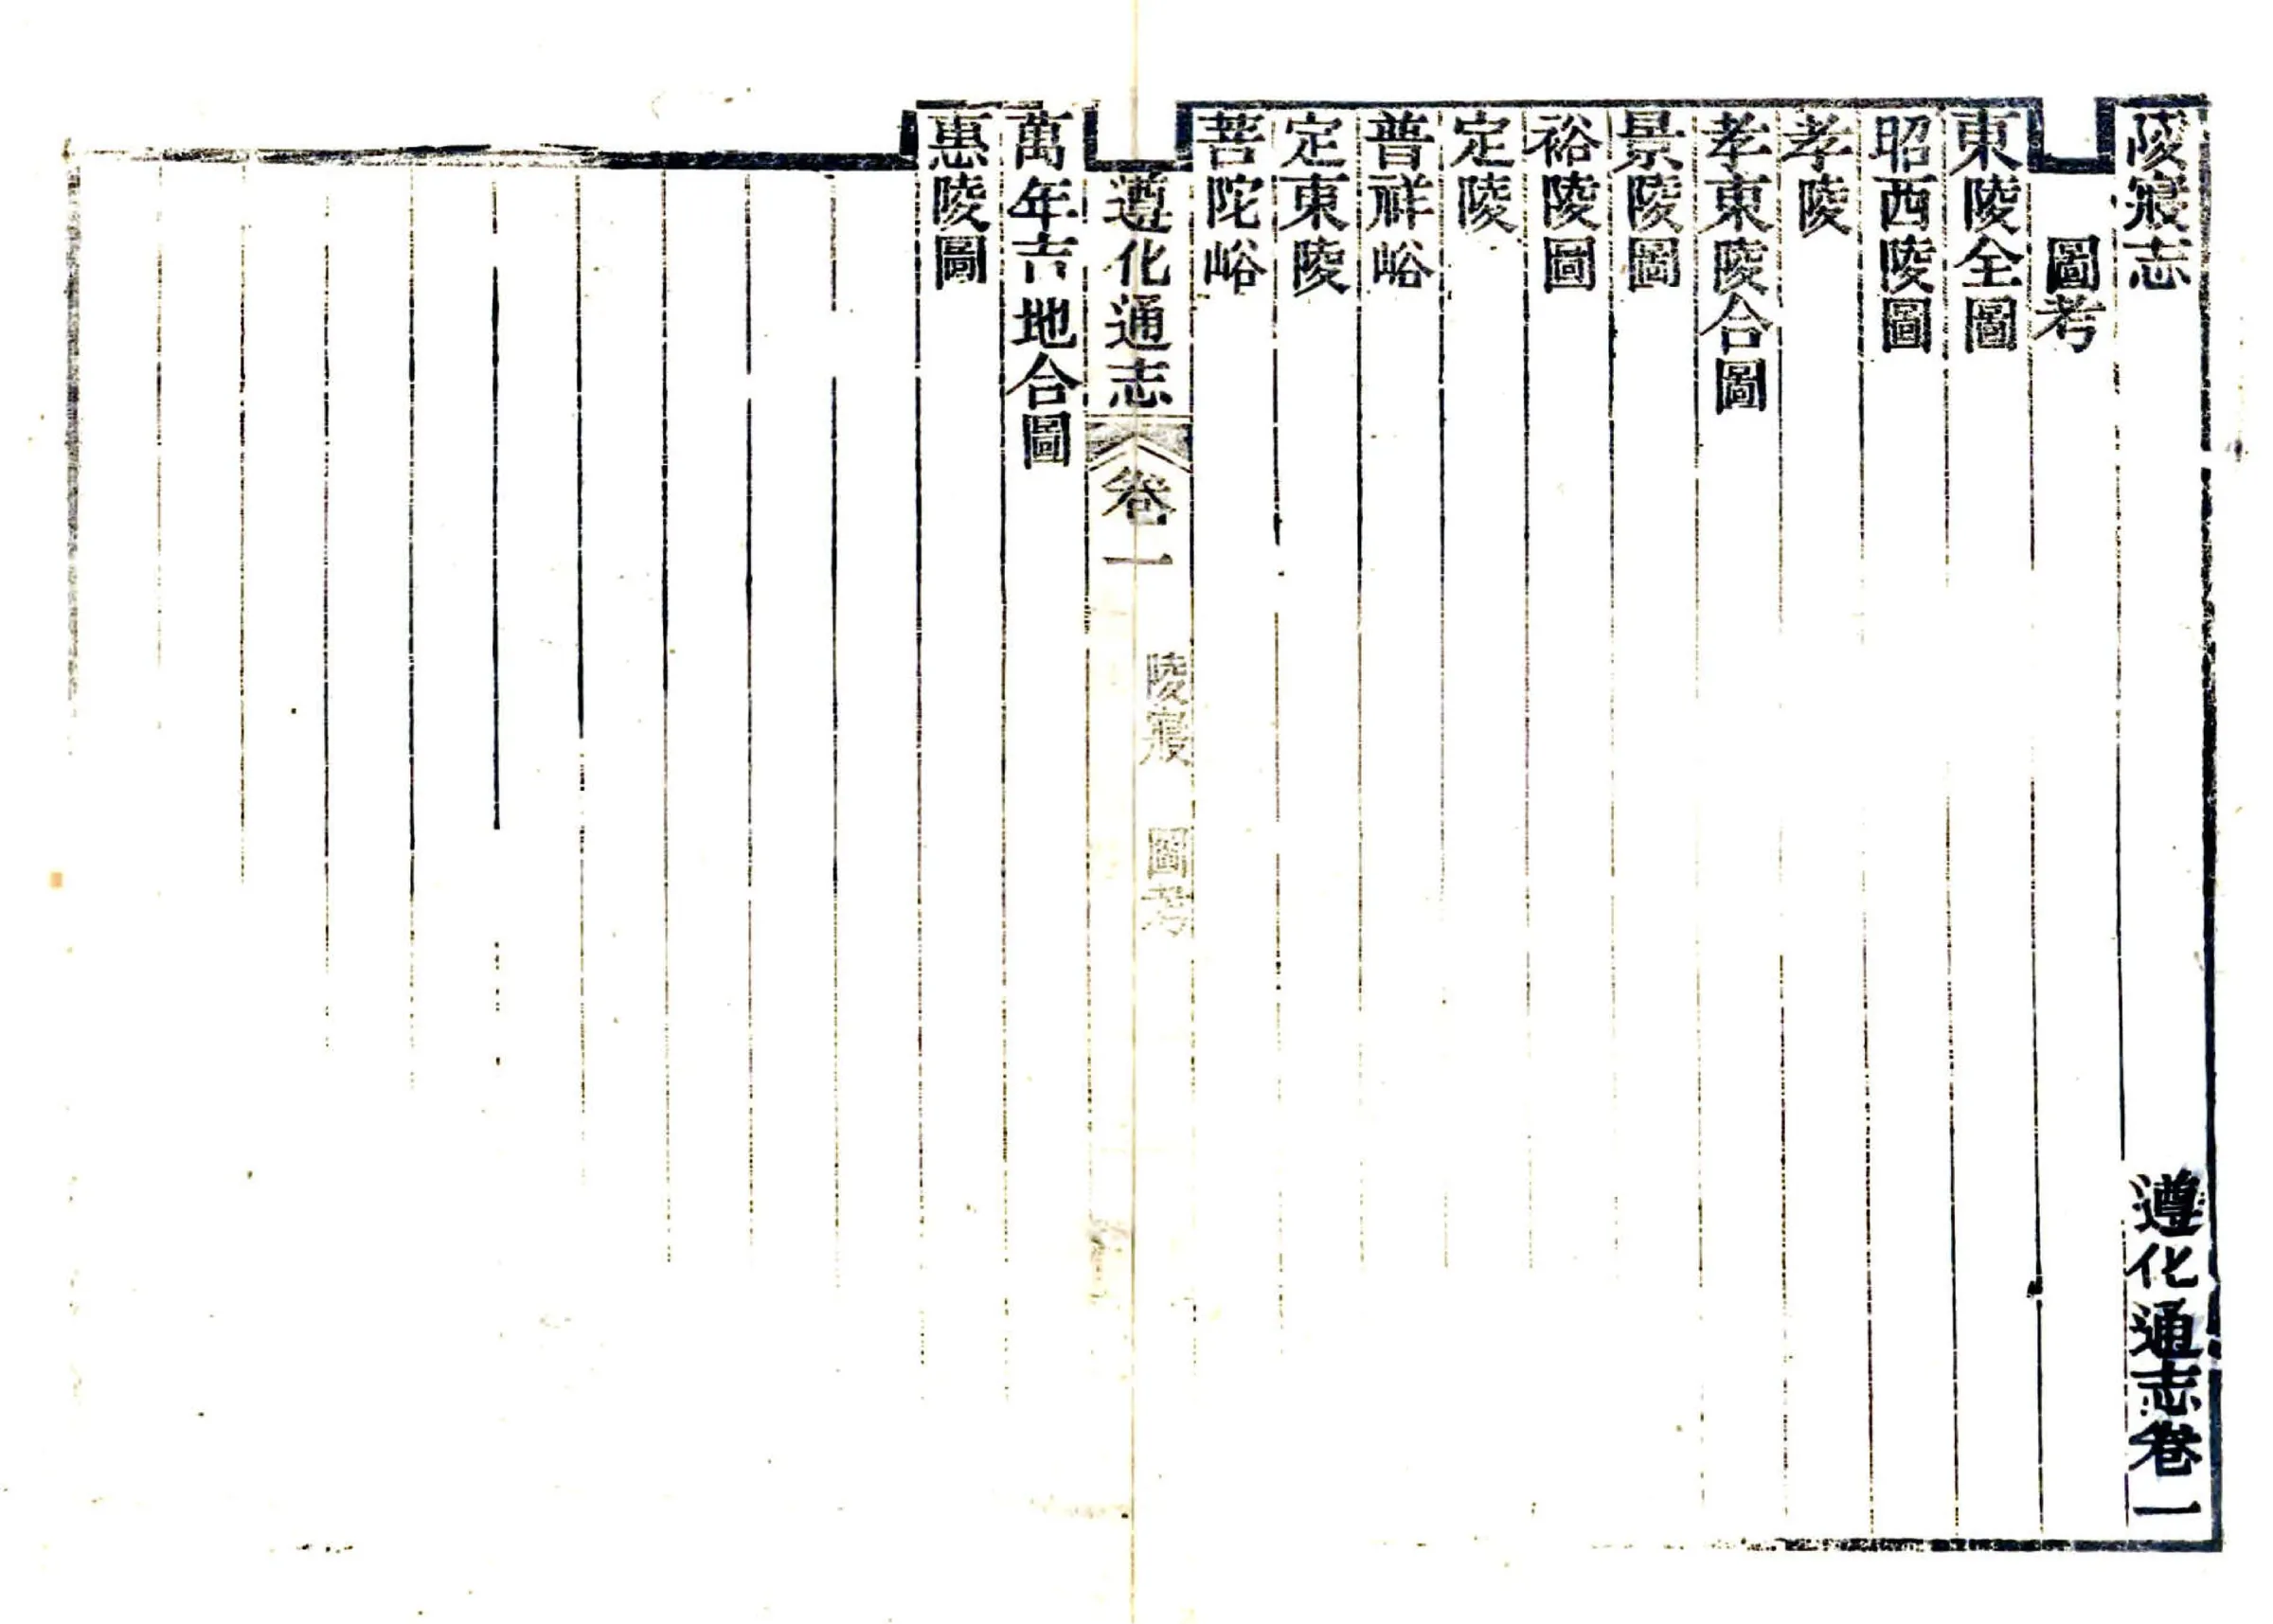 陵寢志　遵化通志卷一
圖考
東陵全圖
昭西陵圖
孝陵
孝東陵合圖
景陵圖
裕陵圖
定陵
普祥峪
定東陵
菩陀峪
遵化通志　卷一　陵寢　圖考
萬年吉地合圖
惠陵圖